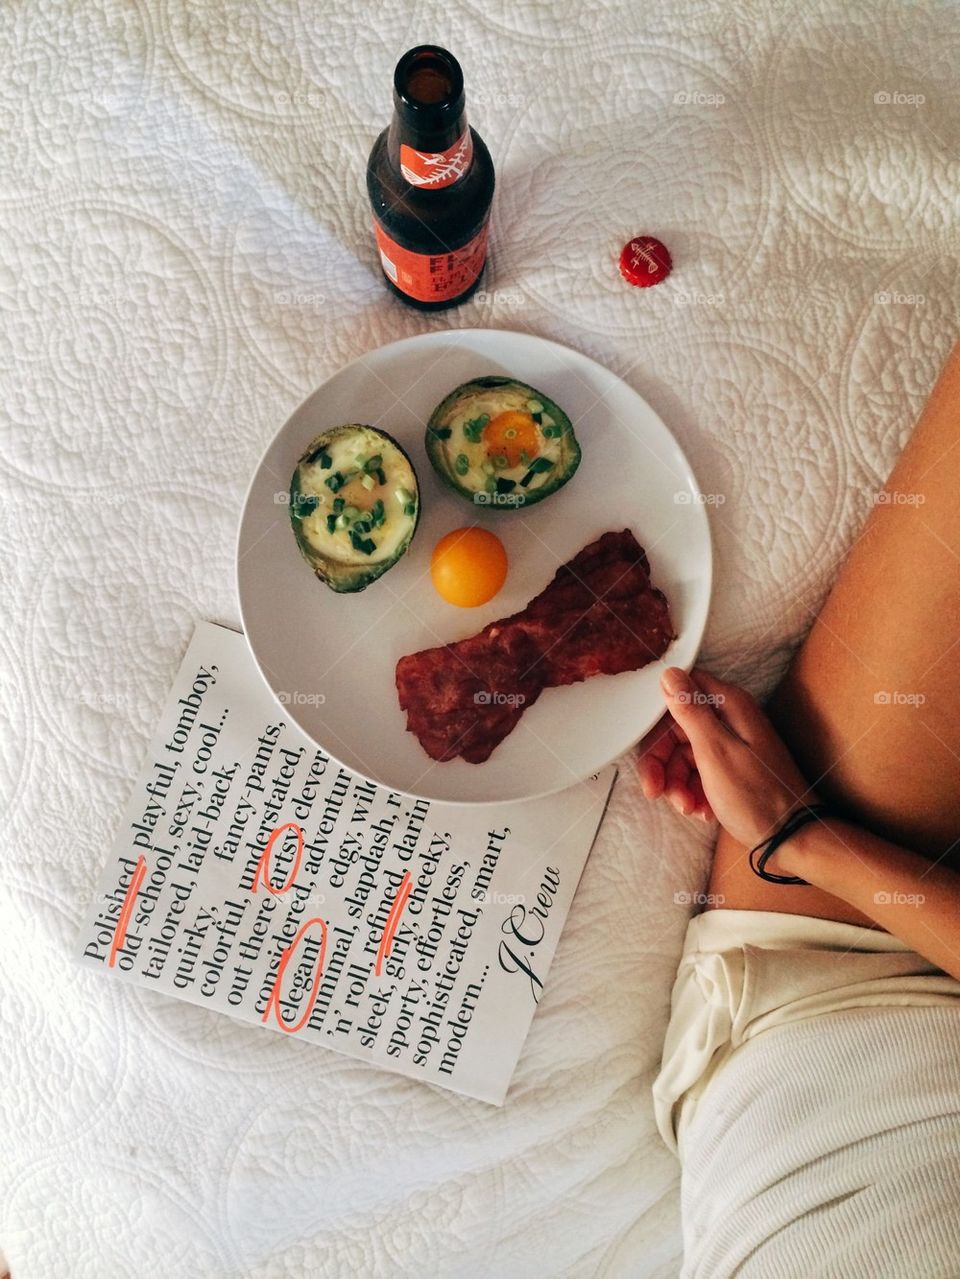 Polished, playful, tomboy,
old-school, sexy, cool...
tailored, laid-back,
quirky, fancy-pants,
colorful, understated,
out there, artsy, clever
considered, adventur
elegant, edgy, wild
minimal, slapdash, r
'n' roll, refined, daring
sleek, girly, cheeky,
sporty, effortless,
sophisticated, smart,
modern...
J.Crew
foap